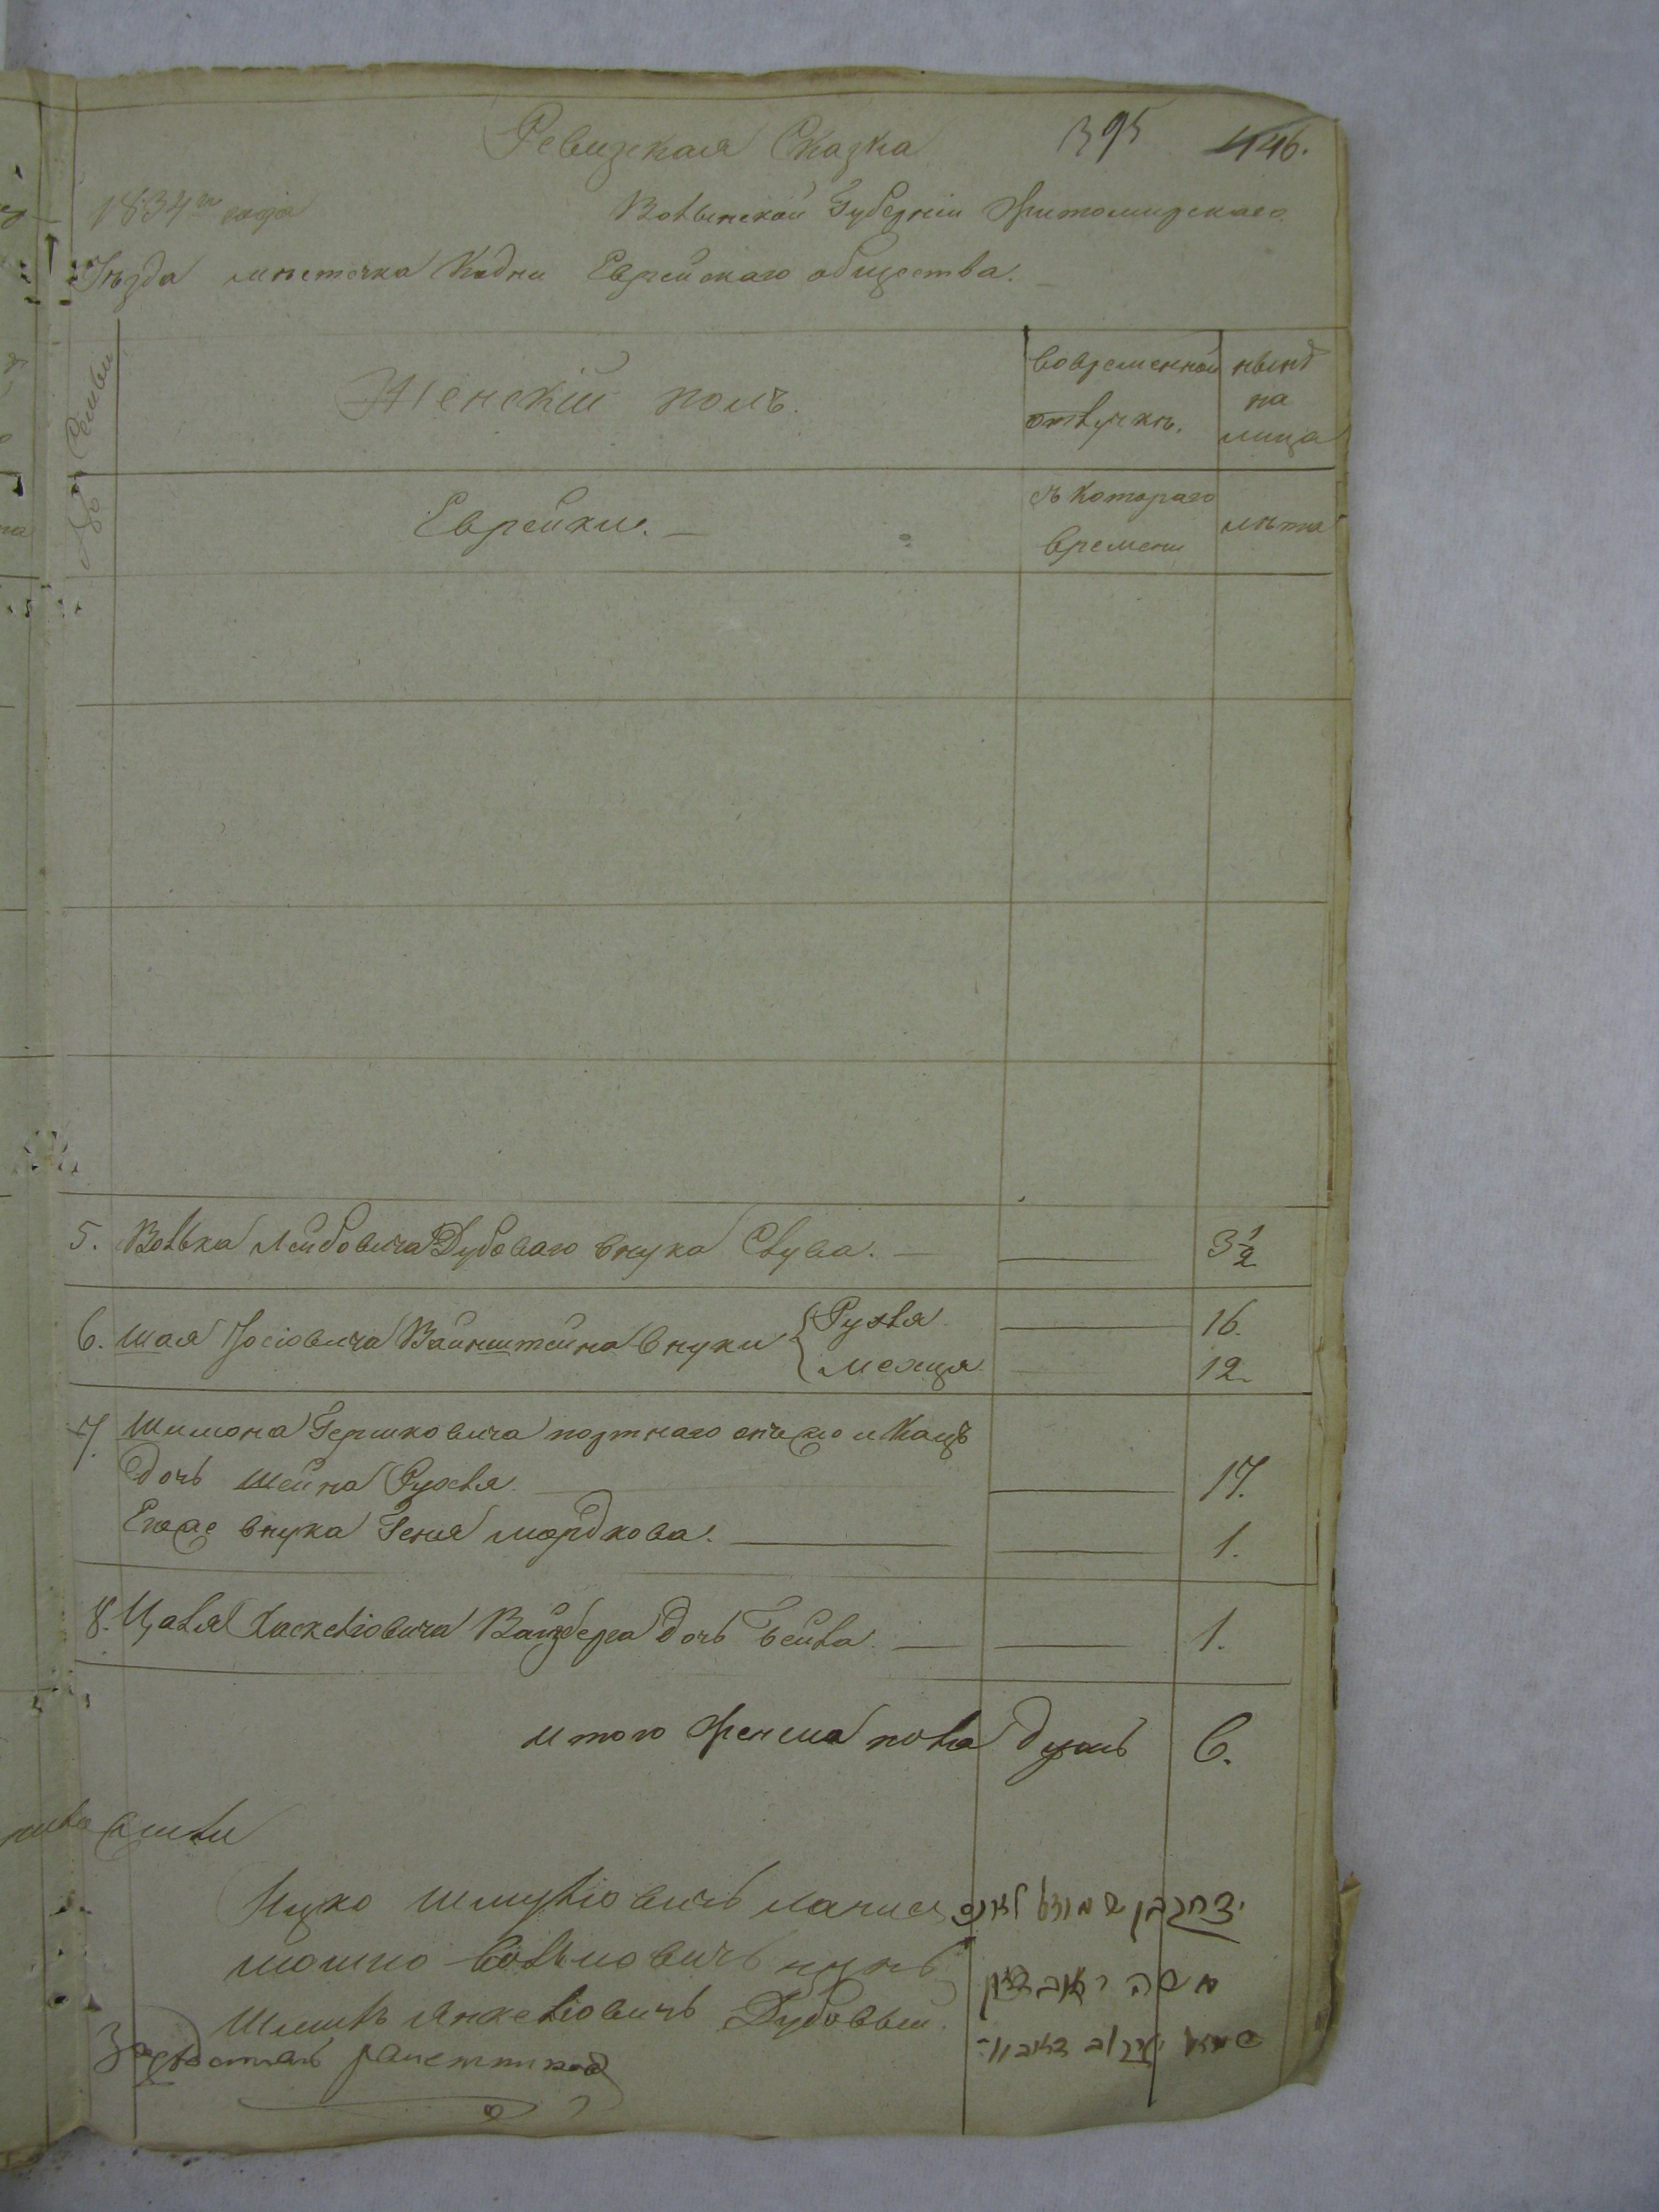 Ревизская Сказка 395 446.
1834го года Волынской Губерніи Житомирскаго
Уѣзда мѣстечка Кодни Еврейскаго общества.
№ Семьи
Женскій полъ.
во временной отлучкѣ.
нынѣ на лицо
Еврейки.
съ котораго времени
лѣта
5. Волька Лейбовича Дубоваго внука Слува. 3½
6. Шая Іосіовича Вайнштейна внуки Рухля 16.
12.
7. Шимона Гершковича портнаго
дочь Шейна Рухля 17.
Егоже внука Геня Мордкова. 1.
8. Цаля Хаскеліовича Вайзберга дочь Бейла 1.
итого женска пола душъ 6.
Ицко Шмуліовичъ
יצחק בן שמואל
Мошко Вольковичъ
משה
Шмиль Янкеліовичъ Дубовый.